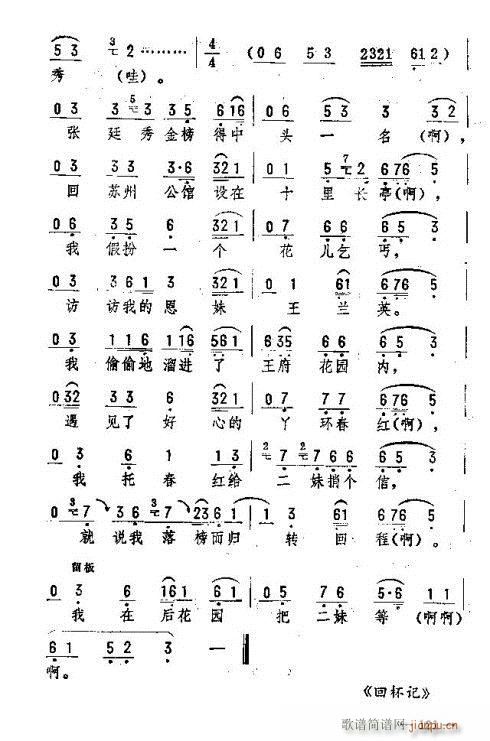 5 3 3 2 ········· 4/4 (0 6 5 3 2321 612)
秀 (哇)。
0 3 5 3 3 5 6 116 0 6 5 3 3 3 2
张 廷 秀 金 榜 得 中 头 一 名 (啊),
0 3 5 3 3·6 321 0 1 5 7 2 676 5
回 苏 州 公 馆 设 在 十 里 长 亭 (啊),
0 6 3 5 6 321 0 7 6 6 5 3
我 假 扮 一 个 花 儿 乞 丐,
0 3 361 3 321 0 1 61 676 5
访 访我的 恩 妹 王 兰 英。
0 3 116 116 561 635 6 6 6 5 3
我 偷偷地 溜进 了 王府 花 园 内,
0 32 1 2 3 321 0 7 7 7 676 5
遇 见 了 好 心 的 丫 环 春 红 (啊),
0 3 6 1 3 2 7 2 7 6 6 5 3
我 托 春 红 给 二 妹 捎 个 信,
0 5 3 7 3 6 3 7 2361 0 3 61 676 5
就 说 我 落 榜 而 归 转 回 程 (啊)。
留板
0 3 6 161 6 1 0 5 7 6 5·6 1 1
我 在 后 花 园 把 二 妹 等 (啊啊)
6 1 5 2 3 —
啊。
《回杯记》
歌谱简谱网
—121—
jianpu.cn